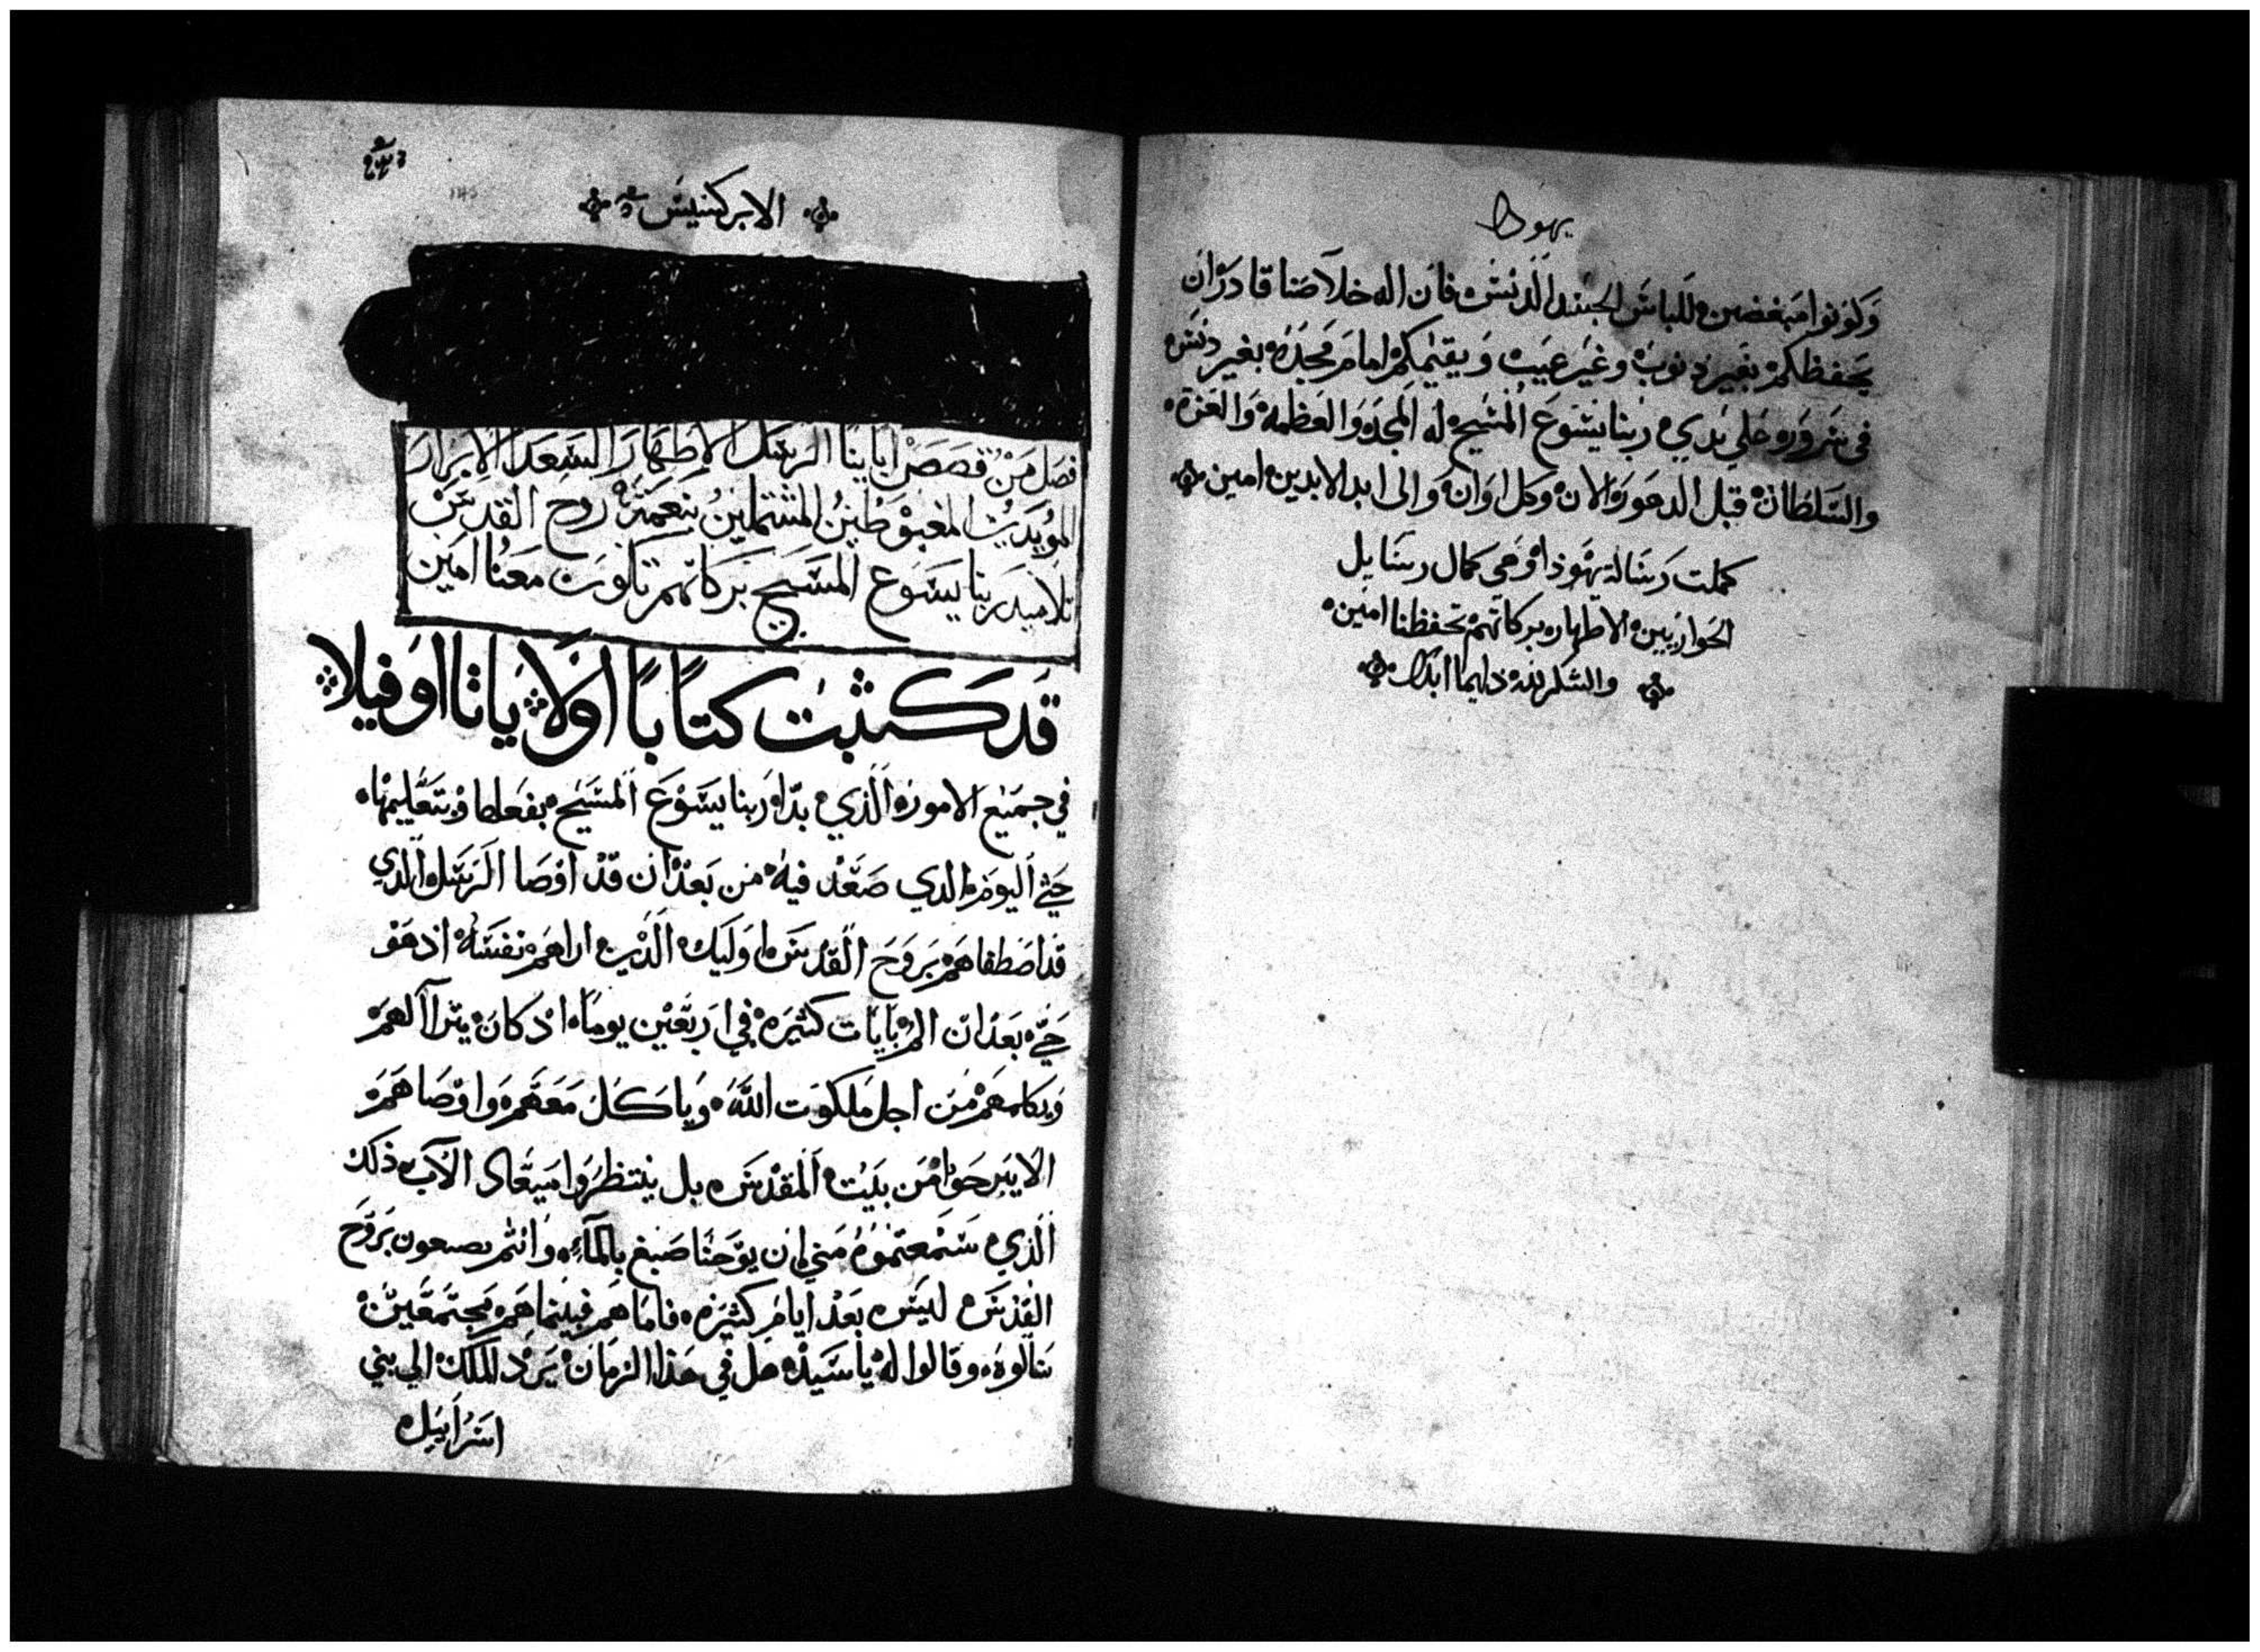 يهودا
وكونوا مبغضين للباس الجسد الدنس فان اله خلاصنا قادر ان
يحفظكم بغير ذنوب وغير عيب ويقيمكم امام مجده بغير دنس
في سروره علي يدي ربنا يسوع المسيح له المجد والعظمة والعزة
والسلطان قبل الدهور والان وكل اوان والى ابد الابدين امين
كملت رسالة يهوذا وهي كمال رسايل
الحواريين الاطهار بركاتهم تحفظنا امين
والشكر لله دايما ابدا
الابركسيس
فصل من قصص اباينا الرسل الاطهار السعدا الابرار
المويدين المغبوطين المشتملين بنعمة روح القدس
تلاميد ربنا يسوع المسيح بركاتهم تكون معنا امين
قد كتبت كتابا اولا ياثااوفيلا
في جميع الامور الذي بدا ربنا يسوع المسيح بفعلها وتعليمها
حتي اليوم الدي صعد فيه من بعد ان قد اوصا الرسل الدي
قد اصطفاهم بروح القدس اوليك الذين اراهم نفسه اذ هو
حي بعد ان الم بايات كثيره في اربعين يوما اذ كان يترآ لهم
ويكلمهم من اجل ملكوت الله وياكل معهم واوصاهم
الا يبرحوا من بيت المقدس بل ينتظروا ميعاد الاب ذلك
الذي سمعتموه مني ان يوحنا صبغ بالمآء وانتم تصبغون بروح
القدس ليس بعد ايام كثيره فاما هم فبينما هم مجتمعين
سالوه وقالوا له يا سيد هل في هذا الزمان يرد الملك الي بني
اسراييل